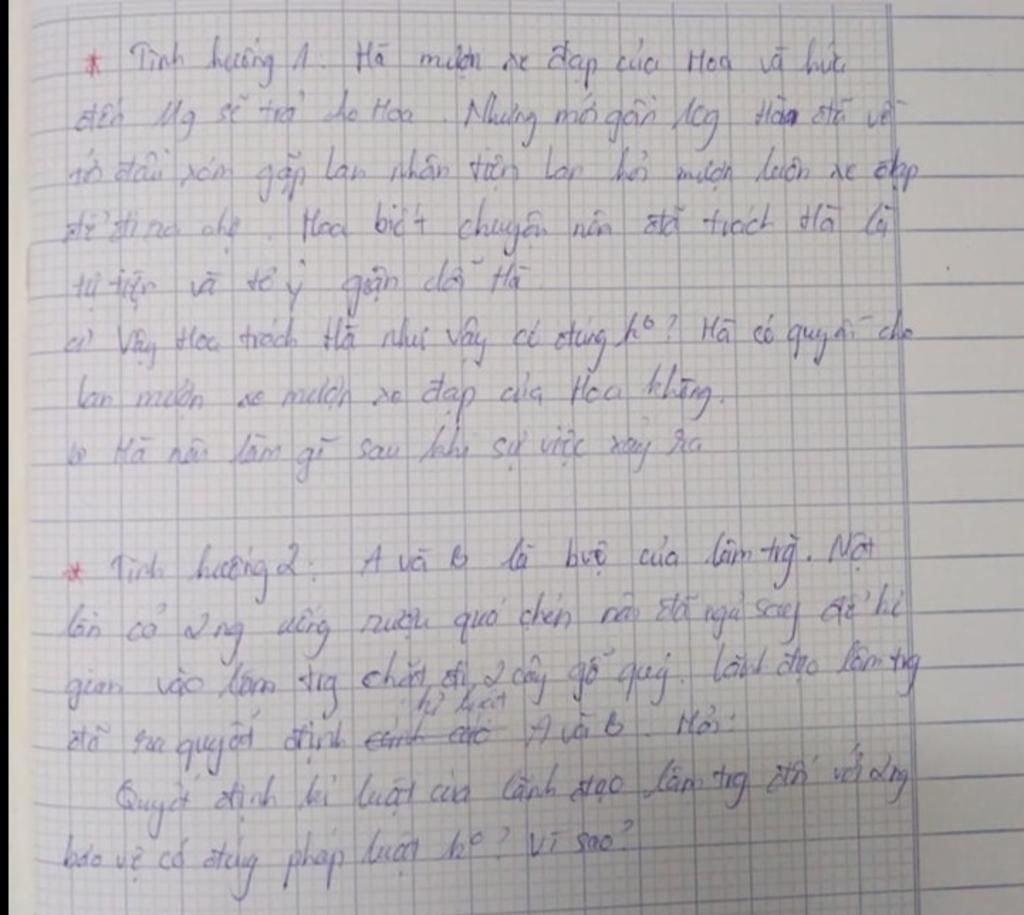 * Tình huống 1. Hà mượn xe đạp của Hoa và hứa
đến 11g sẽ trả cho Hoa. Nhưng mới gần 10g Hà đã về
đầu xóm gặp Lan nhân tiện Lan hỏi mượn luôn xe đạp
để đi chợ. Hoa biết chuyện nên đã trách Hà là
tự tiện và tỏ ý giận dỗi Hà
a) Vậy Hoa trách Hà như vậy có đúng ko? Hà có quyền cho
Lan mượn xe mượn xe đạp của Hoa không.
b) Hà nên làm gì sau khi sự việc xảy ra
* Tình huống 2: A và B là bvệ của lâm trg. Một
lần cả 2ng uống rượu quá chén nên đã ngủ say để kẻ
gian vào lâm trg chặt đi 2 cây gỗ quý. Lãnh đạo lâm trg
đã ra quyết định kỉ luật A và B. Hỏi:
Quyết định kỉ luật của lãnh đạo lâm trg đối với 2ng
bảo vệ có đúng pháp luật ko? Vì sao?